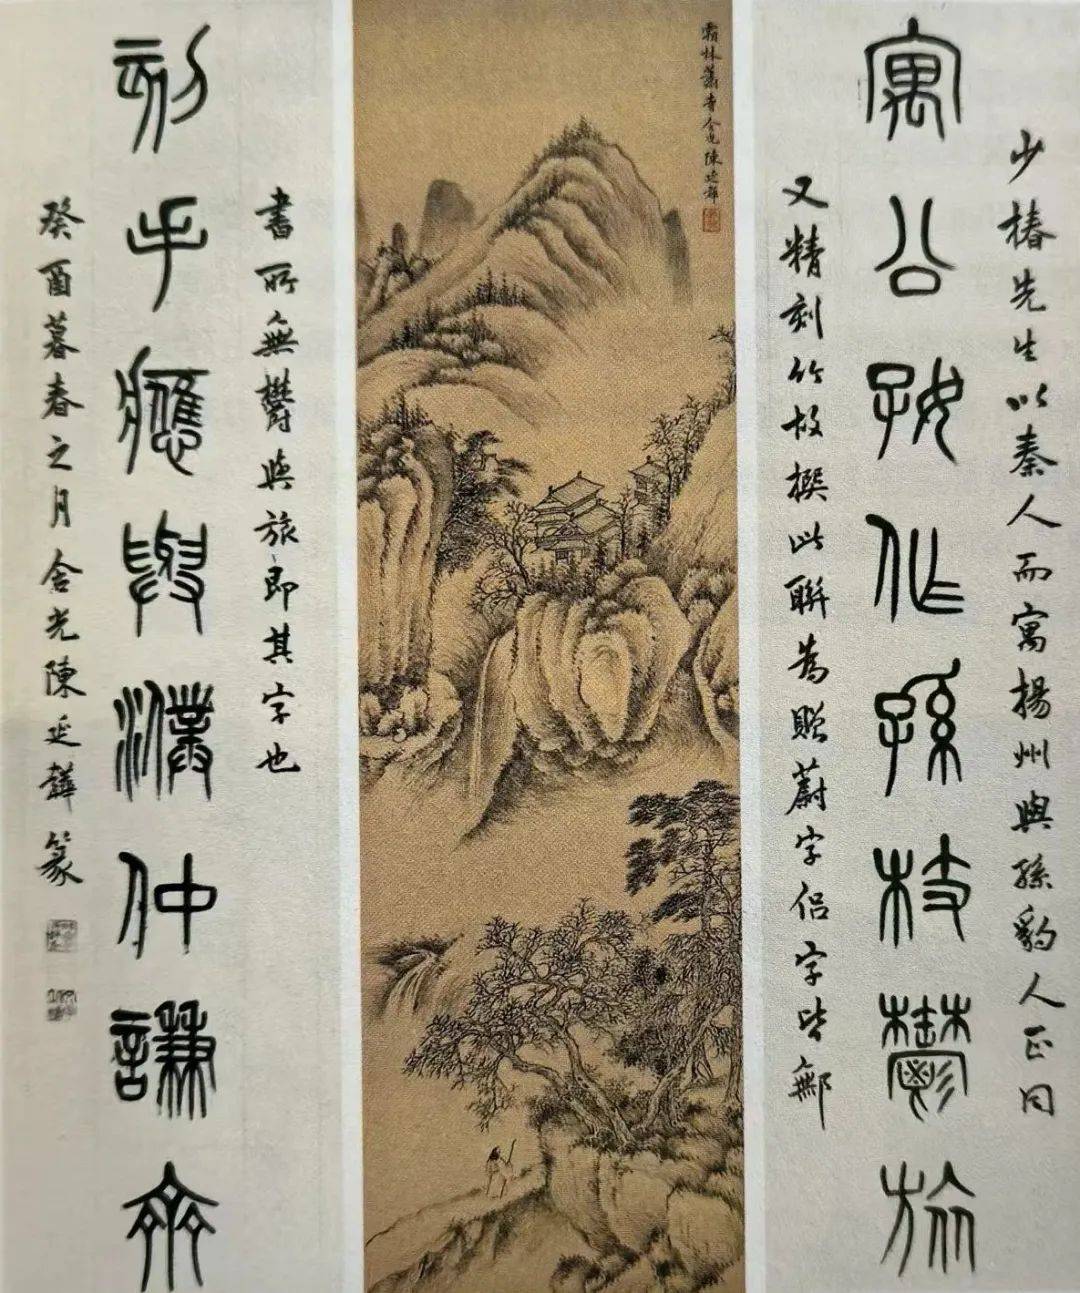 少椿先生以秦人而寓揚州與孫豹人正同
寓公好作孫枝鬱旅
又精刻竹故撰此聯為贈蔚字侶字皆鄦
霜林蕭寺含光陳延韡
書所無鬱與旅即其字也
刻手應與濮仲謙齊
癸酉暮春之月含光陳延韡篆